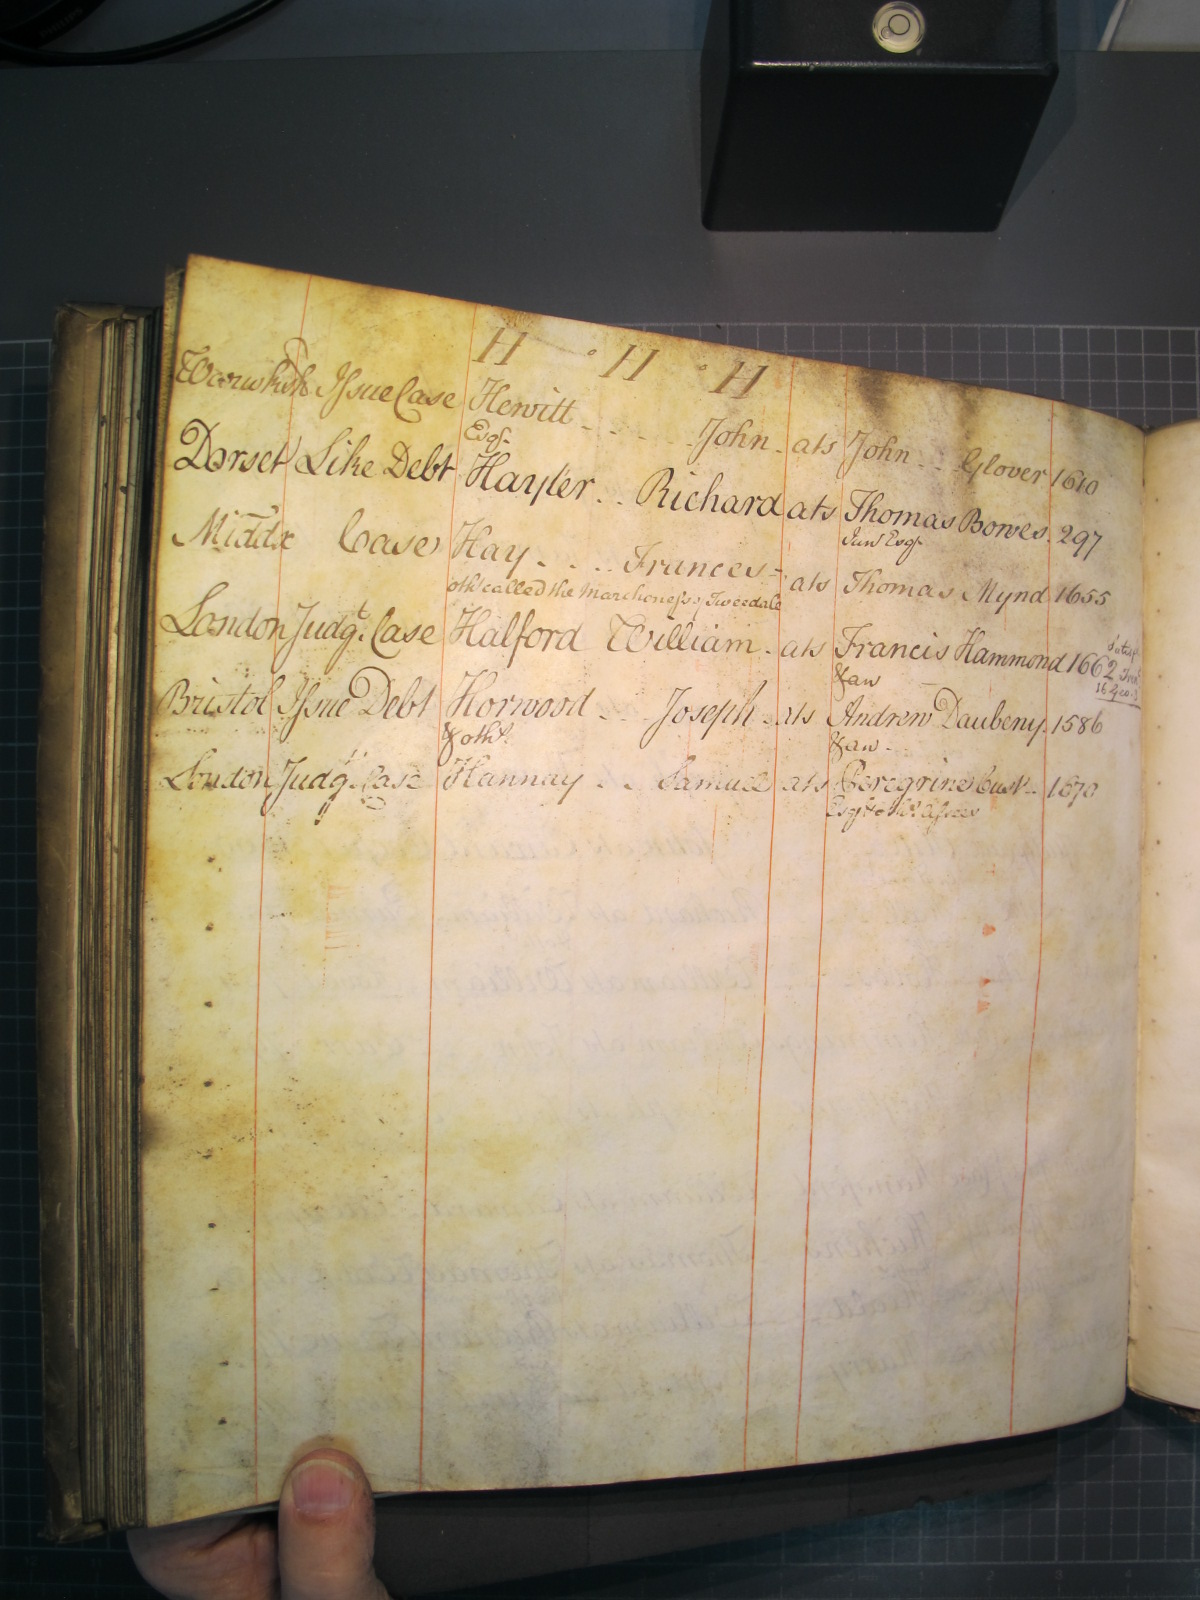 H H H
Warwicksh Issue Case Hewitt John ats John Glover 1610
Esqr
Dorset Like Debt Hayter Richard ats Thomas Bowes 297
Junr Esqr
Middx Case Hay Frances ats Thomas Mynd 1655
othr called the Marchioness of Tweedale
London Judgt. Case Halford William ats Francis Hammond 1662
& an
Bristol Issue Debt Horwood Joseph ats Andrew Daubeny 1586
& othr. & an
London Judgt. Case Hannay Samuel ats Peregrine Cust 1670
Esqr & othrs Assees